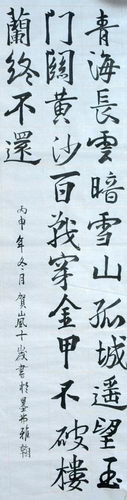 青海長雲暗雪山孤城遙望玉
門關黃沙百戰穿金甲不破樓
蘭終不還
丙申年冬月賀嵐十歲書於墨雅